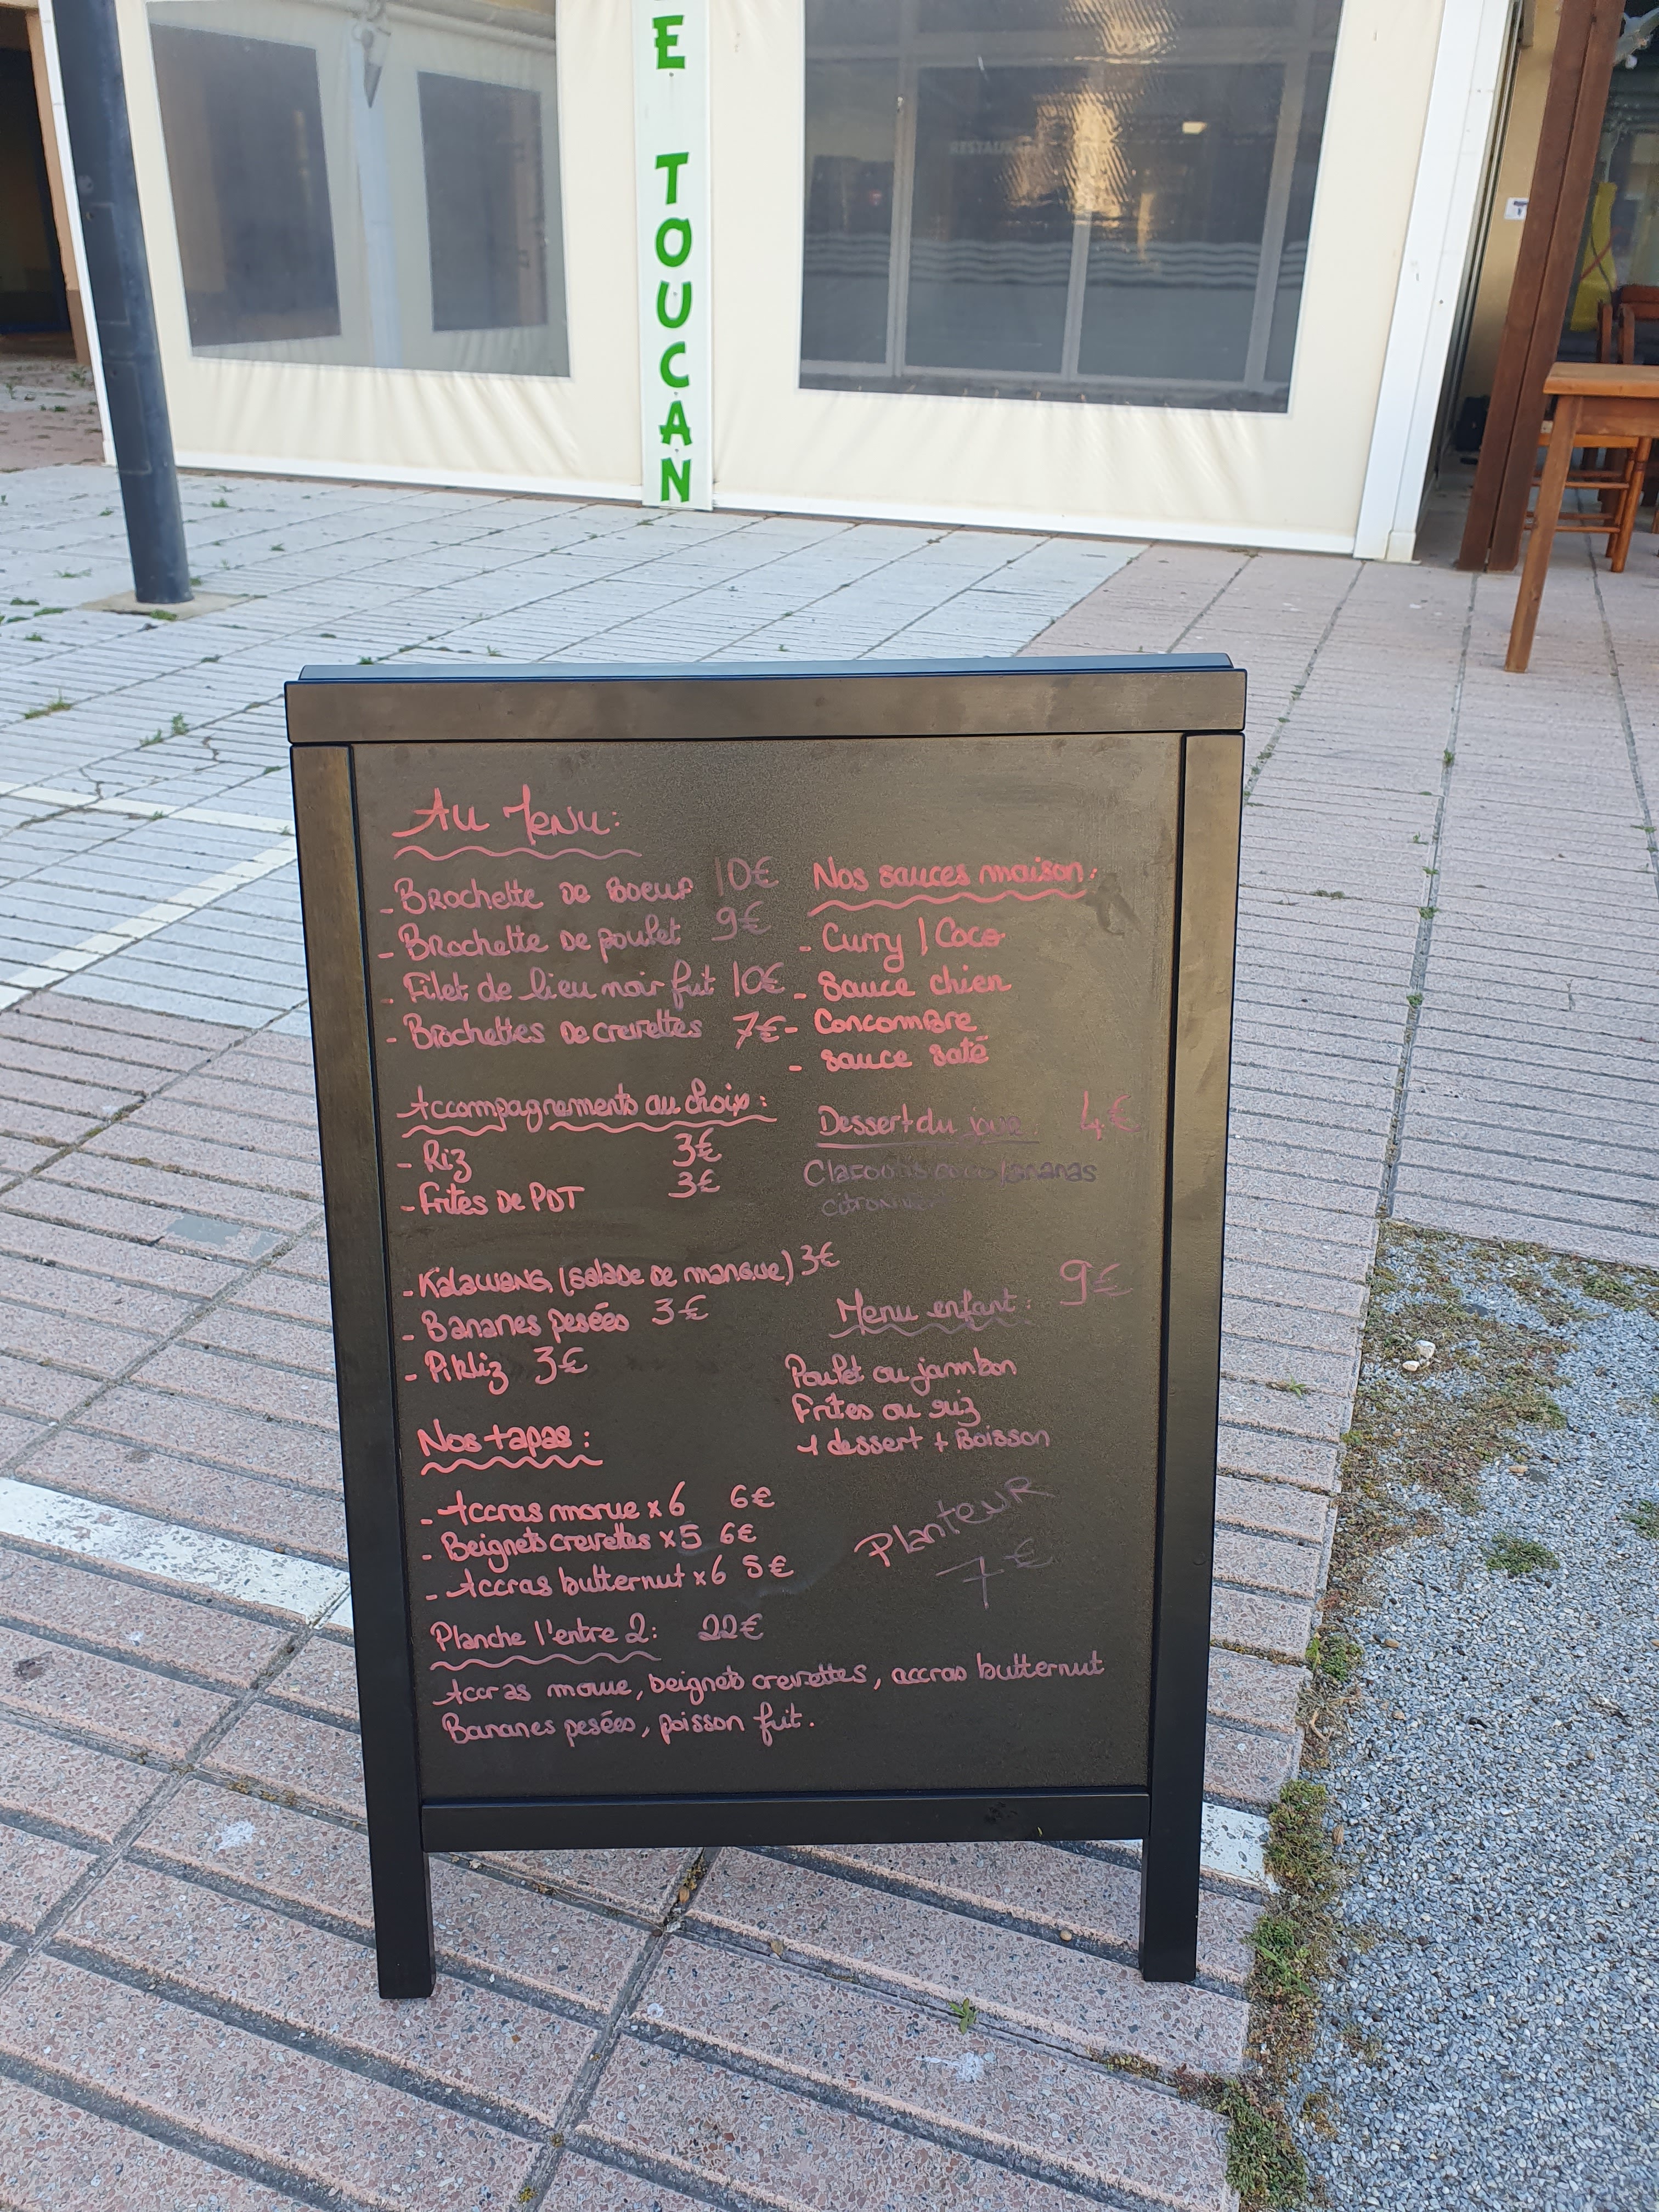 E TOUCAN
RESTAU
Au Menu:
- Brochette de Boeuf 10€
- Brochette de poulet 9€
- Filet de lieu noir frit 10€
- Brochettes de crevettes 7€
Accompagnements au choix:
- Riz 3€
- Frites de PDT 3€
- Kalawang (salade de mangue) 3€
- Bananes pesées 3€
- Pikliz 3€
Nos tapas:
- Accras morue x6 6€
- Beignets crevettes x5 6€
- Accras butternut x6 5€
Planche l'entre 2: 22€
Accras morue, beignets crevettes, accras butternut
Bananes pesées, poisson frit.
Nos sauces maison:
- Curry / Coco
- Sauce chien
- Concombre
- sauce saté
Dessert du jour: 4€
Clafoutis coco/ananas
Menu enfant: 9€
Poulet ou jambon
Frites ou riz
1 dessert + Boisson
Planteur
7€